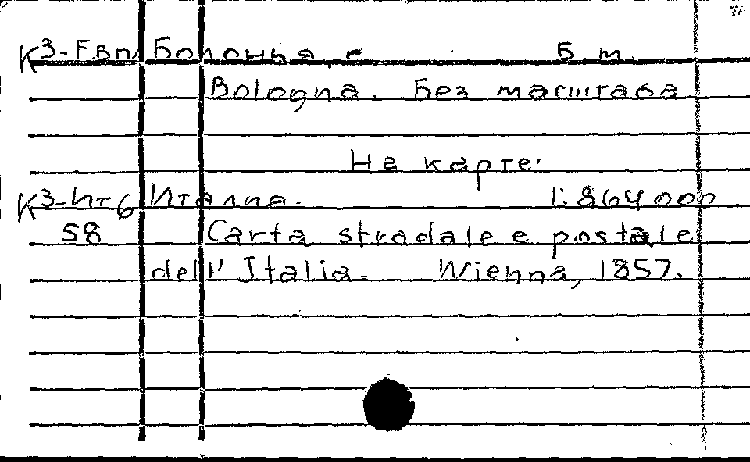 К3-Евп Болонья, г. Б. м.
Bologna. Без масштаба
На карте:
К3-Ит6 Италия. 1:864 000
58 Carta stradale e postale
dell' Italia. Wienna, 1857.